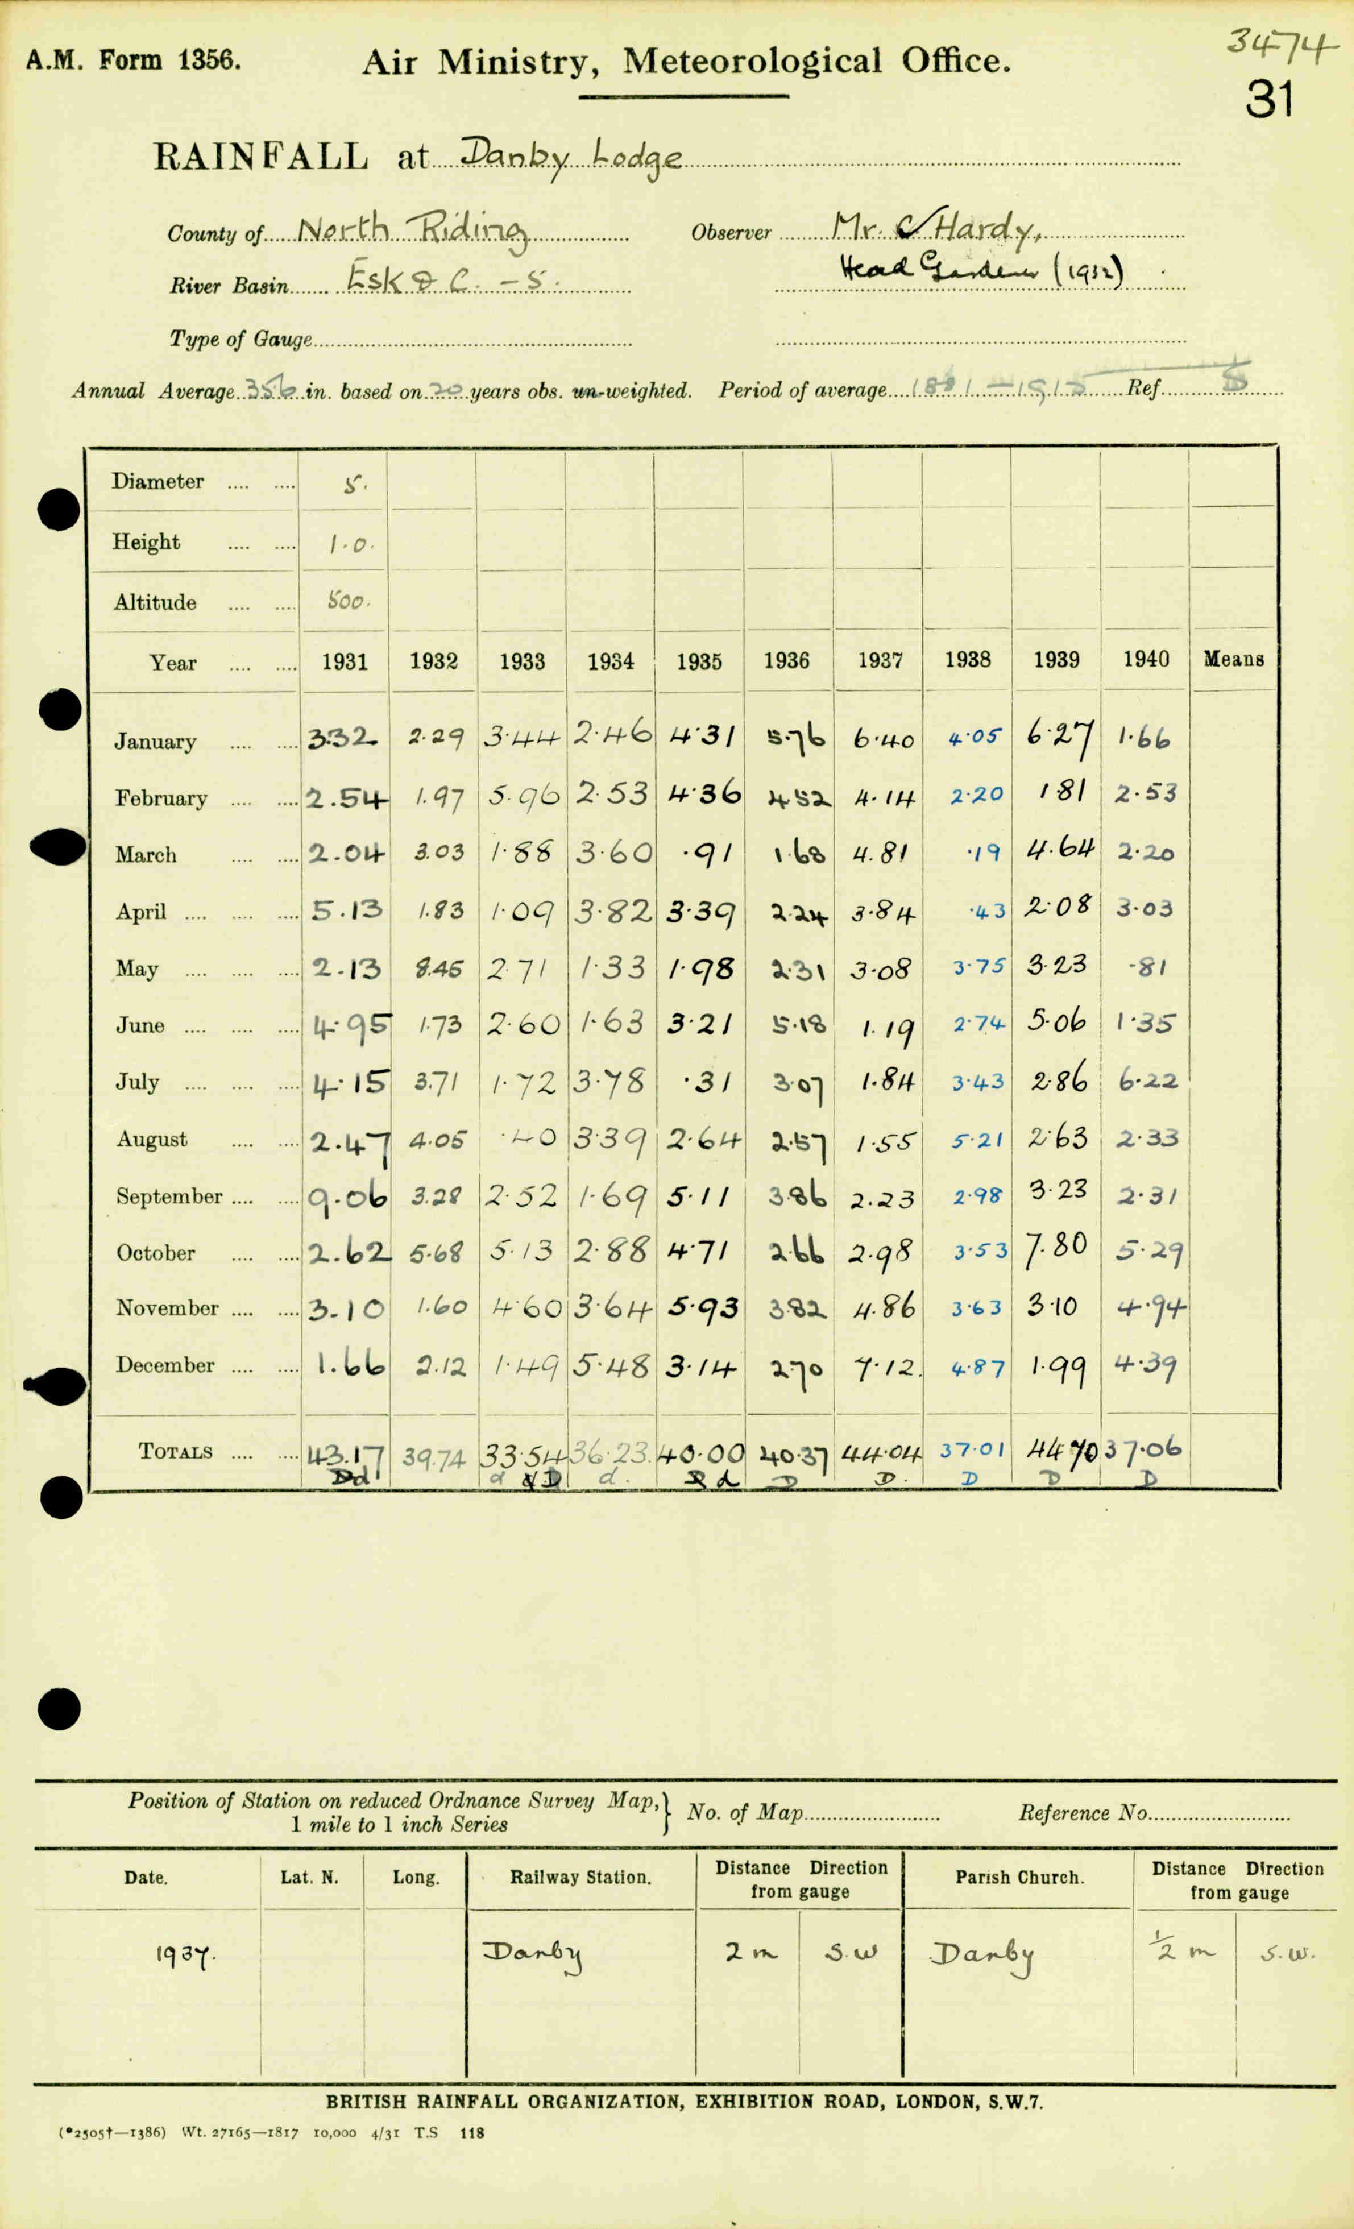 3474
A.M. Form 1356. Air Ministry, Meteorological Office.
31
RAINFALL at Danby Lodge
County of North Riding Observer Mr. C Hardy,
Head Gardener (1932)
River Basin Esk & C. - 5.
Type of Gauge
Annual Average 35 in. based on 20 years obs. un-weighted. Period of average 1881-1915 Ref. D
Diameter 5.
Height 1.0.
Altitude 500.
Year 1931 1932 1933 1934 1935 1936 1937 1938 1939 1940 Means
January 3.32 2.29 3.44 2.46 4.31 5.76 6.40 4.05 6.27 1.66
February 2.54 1.97 5.96 2.53 4.36 4.52 4.14 2.20 1.81 2.53
March 2.04 3.03 1.88 3.60 .91 1.68 4.81 .19 4.64 2.20
April 5.13 1.83 1.09 3.82 3.39 2.24 3.84 .43 2.08 3.03
May 2.13 8.45 2.71 1.33 1.98 2.31 3.08 3.75 3.23 .81
June 4.95 1.73 2.60 1.63 3.21 5.18 1.19 2.74 5.06 1.35
July 4.15 3.71 1.72 3.78 .31 3.07 1.84 3.43 2.86 6.22
August 2.47 4.05 .40 3.39 2.64 2.57 1.55 5.21 2.63 2.33
September 9.06 3.28 2.52 1.69 5.11 3.86 2.23 2.98 3.23 2.31
October 2.62 5.68 5.13 2.88 4.71 2.66 2.98 3.53 7.80 5.29
November 3.10 1.60 4.60 3.64 5.93 3.82 4.86 3.63 3.10 4.94
December 1.66 2.12 1.49 5.48 3.14 2.70 7.12. 4.87 1.99 4.39
TOTALS 43.17 39.74 33.54 36.23 40.00 40.37 44.04 37.01 44.70 37.06
d d D d. d D D. D D D
Position of Station on reduced Ordnance Survey Map, 1 mile to 1 inch Series } No. of Map Reference No.
Date. Lat. N. Long. Railway Station. Distance Direction from gauge Parish Church. Distance Direction from gauge
1937. Danby 2 m S.W Danby 1/2 m S.W.
BRITISH RAINFALL ORGANIZATION, EXHIBITION ROAD, LONDON, S.W.7.
(*2505†—1386) Wt. 27165—1817 10,000 4/31 T.S 118